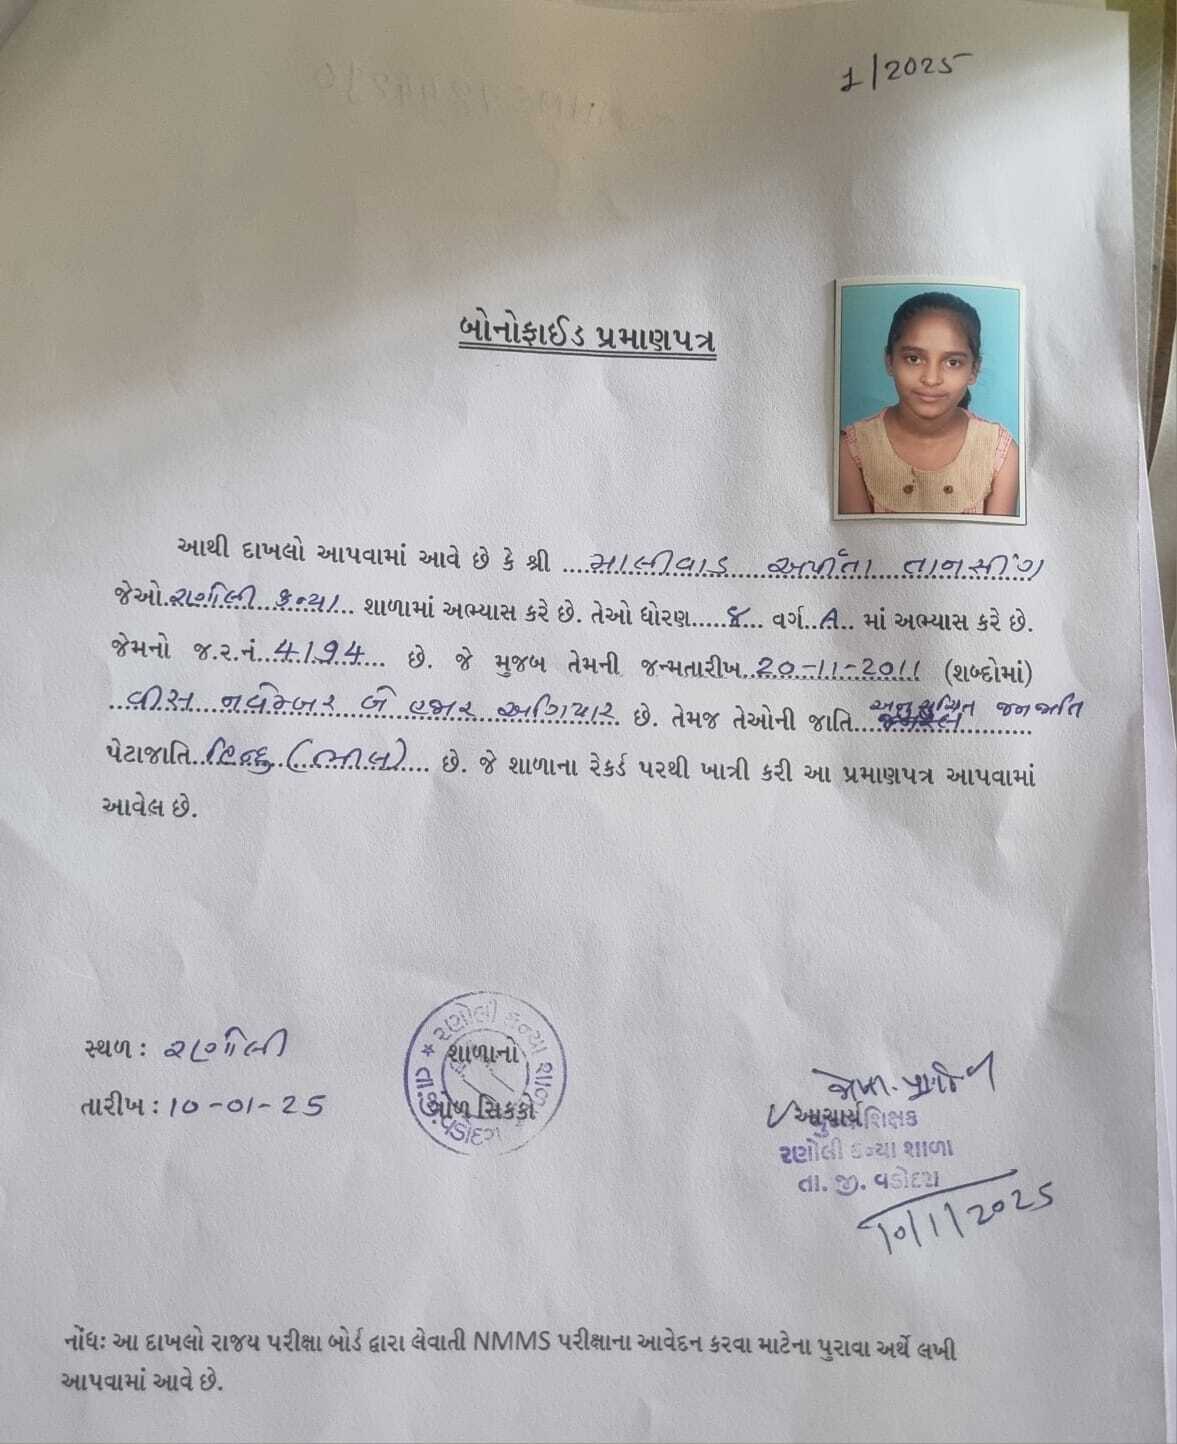 1/2025
બોનોફાઈડ પ્રમાણપત્ર
આથી દાખલો આપવામાં આવે છે કે શ્રી ...માલીવાડ અર્પિતા તાનસીંગ
જેઓ..રણોલી કન્યા... શાળામાં અભ્યાસ કરે છે. તેઓ ધોરણ.....૮... વર્ગ..A.. માં અભ્યાસ કરે છે.
જેમનો જ.ર.નં..4194... છે. જે મુજબ તેમની જન્મતારીખ..20-11-2011 (શબ્દોમાં)
..વીસ નવેમ્બર બે હજાર અગિયાર છે. તેમજ તેઓની જાતિ...અનુસુચિત જનજાતિ
પેટાજાતિ..હિન્દુ (ભીલ)... છે. જે શાળાના રેકર્ડ પરથી ખાત્રી કરી આ પ્રમાણપત્ર આપવામાં
આવેલ છે.
સ્થળ : રણોલી
તારીખ : 10-01-25
રણોલી કન્યા શાળા
શાળાનો
ગોળ સિક્કો
આચાર્ય
શિક્ષક
રણોલી કન્યા શાળા
તા.જી. વડોદરા
10/1/2025
નોંધઃ આ દાખલો રાજય પરીક્ષા બોર્ડ દ્વારા લેવાતી NMMS પરીક્ષાના આવેદન કરવા માટેના પુરાવા અર્થે લખી
આપવામાં આવે છે.